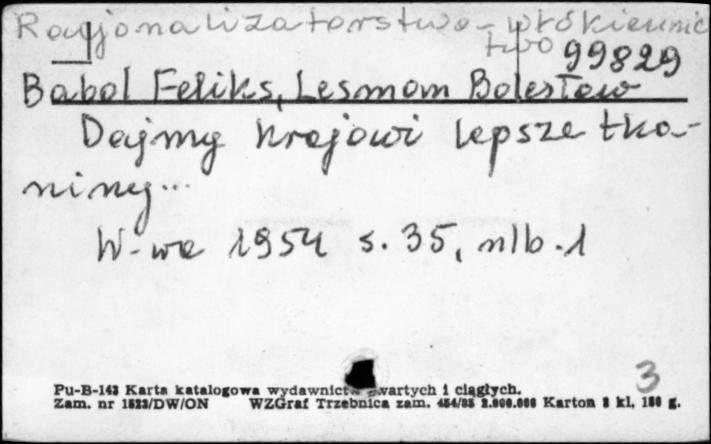 Racjonalizatorstwo - włókiennic
two 99829
Babol Feliks, Lesmom Bolesław
Dajmy krajowi lepsze tka-
niny...
W-wa 1954 s. 35, nlb. 1
3
Pu-B-143 Karta katalogowa wydawnictw zwartych i ciągłych.
Zam. nr 1523/DW/ON WZGraf Trzebnica zam. 454/85 2.000.000 Karton 3 kl. 180 g.